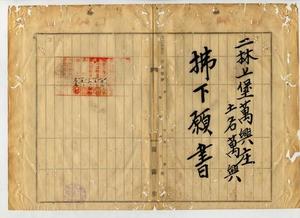 二林上堡萬興庄
土名萬興
拂下願書